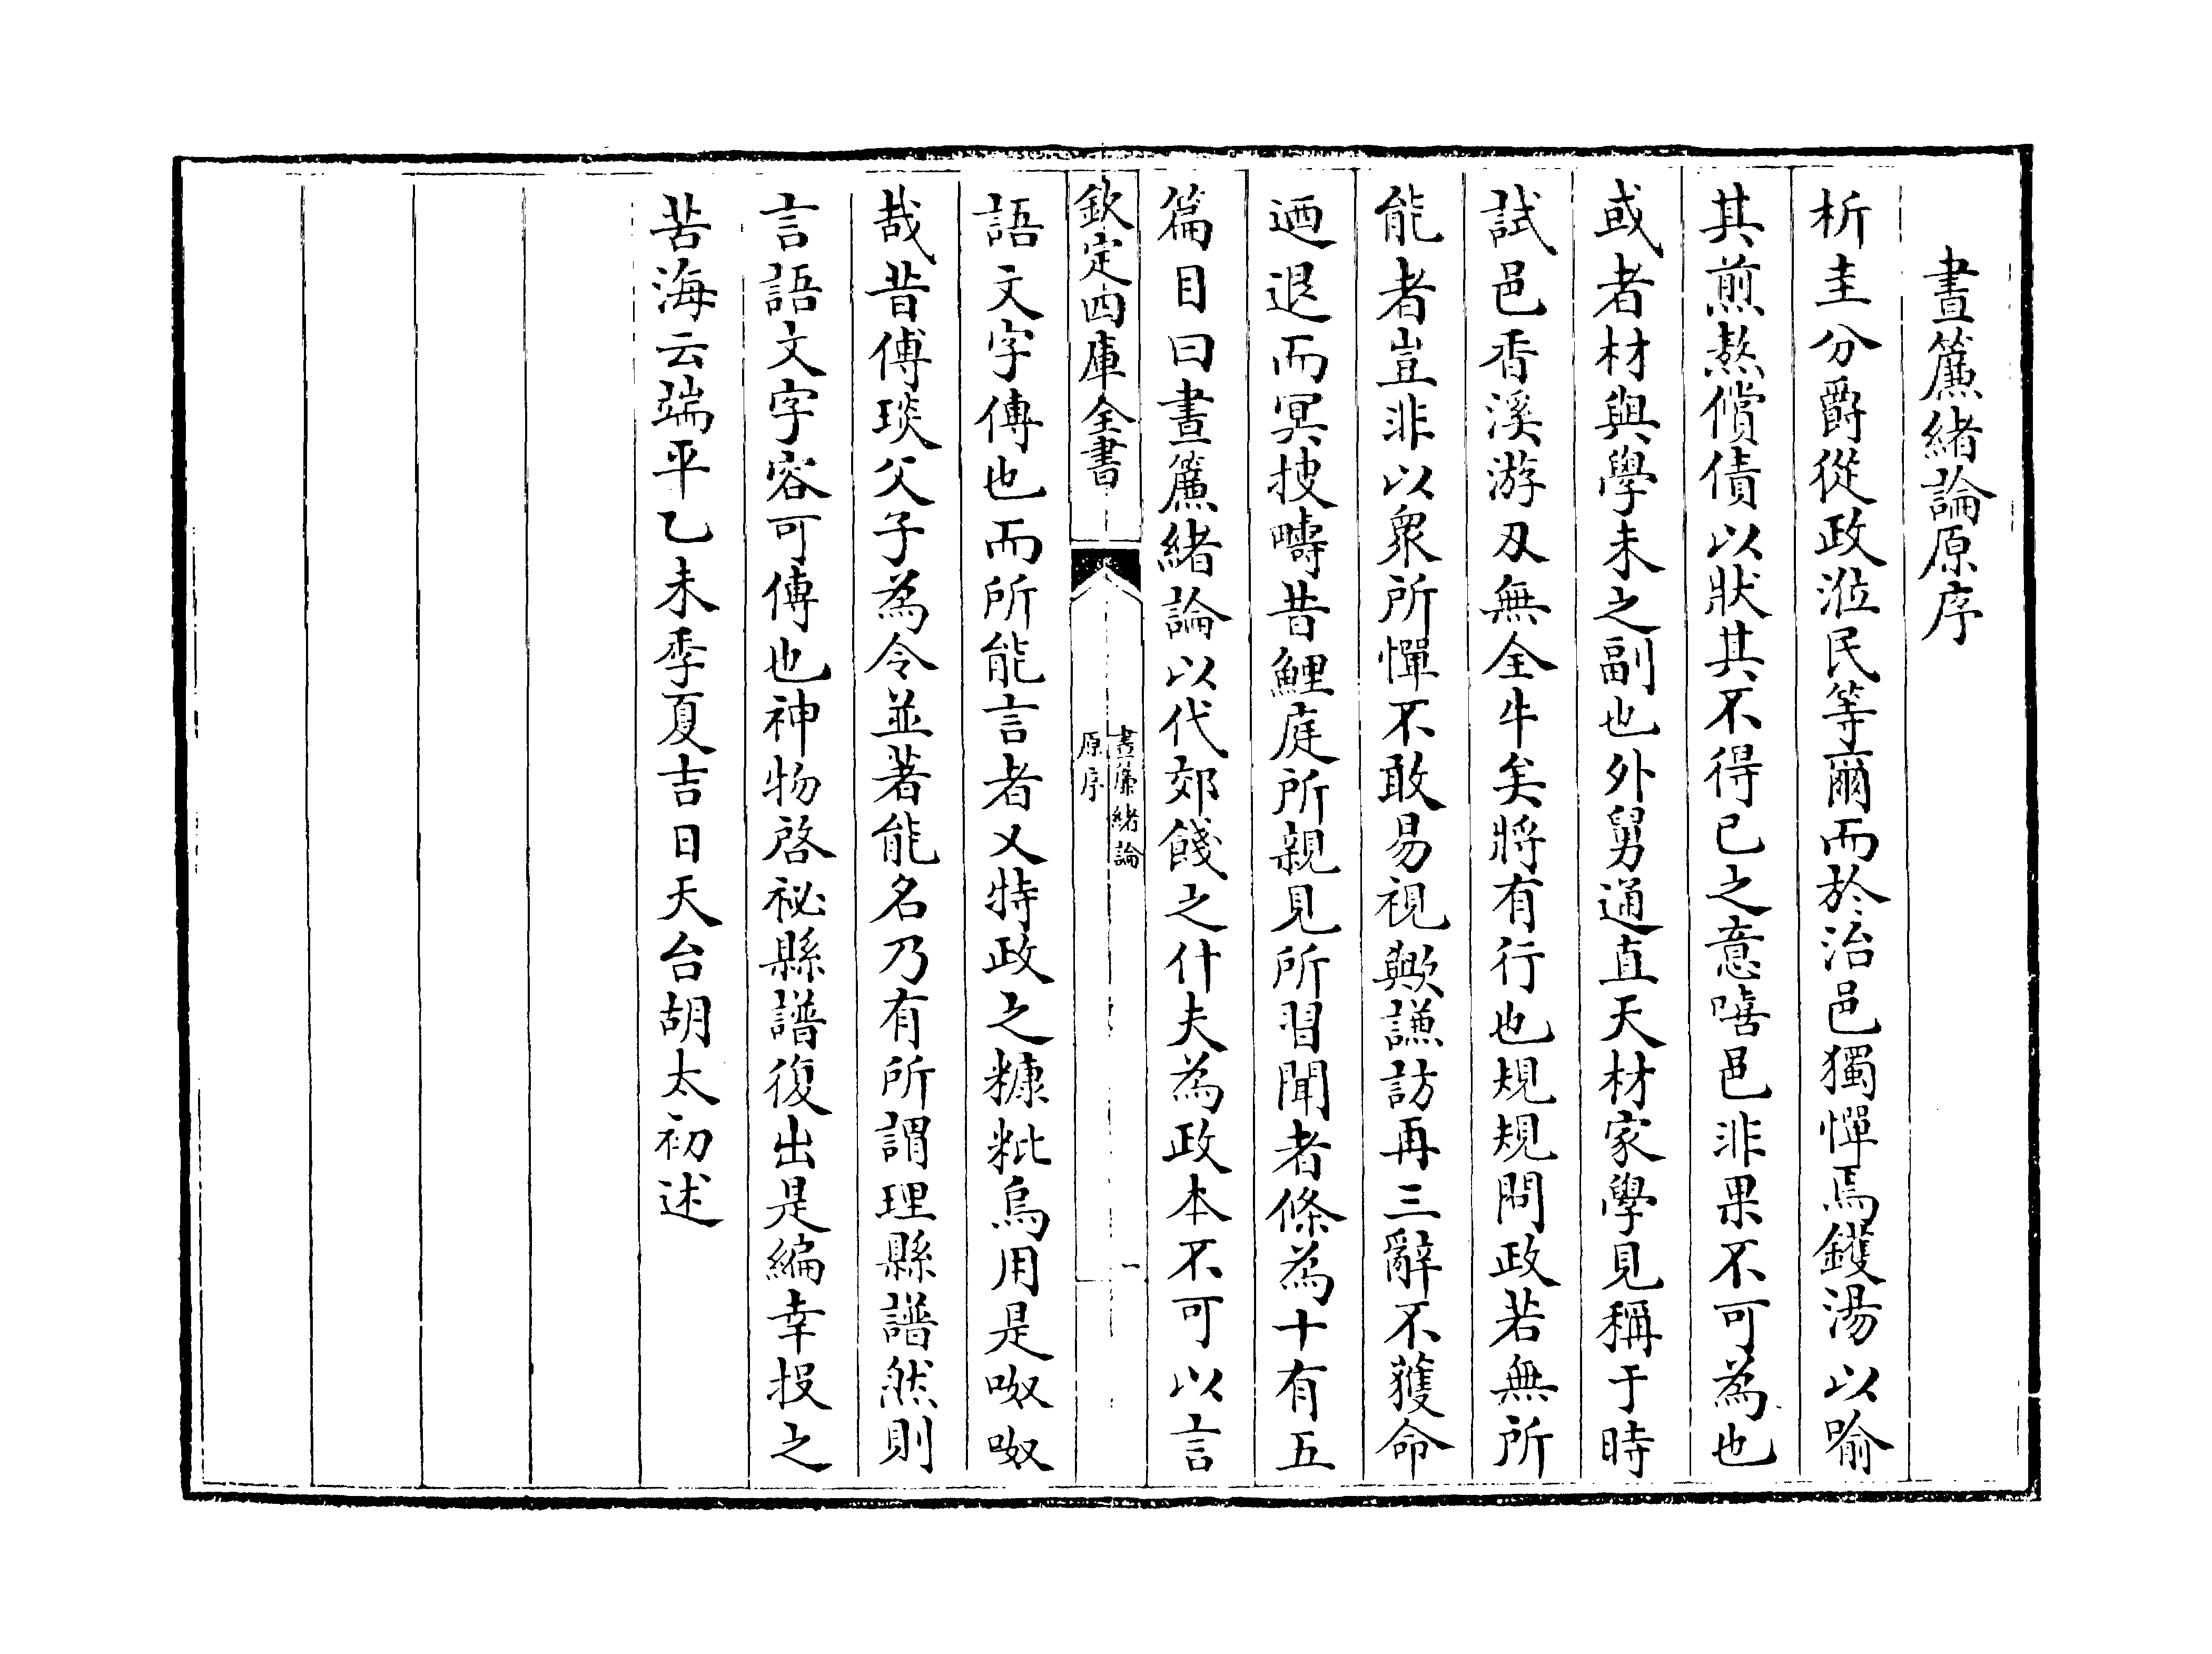 晝簾緒論原序
析圭分爵從政涖民等爾而於治邑獨憚焉鑊湯以喻
其煎熬償債以狀其不得已之意嘻邑非果不可為也
或者材與學未之副也外舅通直天材家學見稱于時
試邑香溪游刃無全牛矣將有行也規規問政若無所
能者豈非以衆所憚不敢易視歟謙訪再三辭不獲命
迺退而冥搜疇昔鯉庭所親見所習聞者條為十有五
篇目曰晝簾緒論以代郊餞之什夫為政本不可以言
欽定四庫全書
晝簾緒論
原序
一
語文字傳也而所能言者又特政之糠粃烏用是呶呶
哉昔傅琰父子為令並著能名乃有所謂理縣譜然則
言語文字容可傳也神物啓祕縣譜復出是編幸投之
苦海云端平乙未季夏吉日天台胡太初述